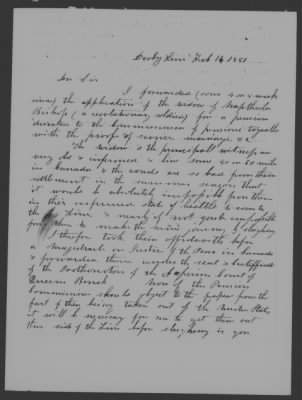 Derby Line Feb 14 1851
Dr Sir
I forwarded (some 4 or 5 weeks
since) the application of the widow of Napthala
Bishop (a revolutionary soldier) for a pension
directed to the Commissioner of pensions together
with the proofs of service marriage &c
The widow & the principal witness are
very old & infirm & live some 40 or 50 miles
in Canada & the roads are so bad from their
settlement in the summer season that
it would be absolutely impossible for them
in their infirmed state of health to come to
the Line & nearly if not quite impossible
for them to make the journey by sleighing
I therefore took their affidavits before
a Magistrate or Justice of the Peace in Canada
& forwarded them under the seal & certificate
of the Prothonotary of the Superior Court of
Queens Bench Now if the Pension
Commissioner should object to the papers from the
fact of their being taken out of the United States
it will be necessary for me to get them out
this side of the Line before sleighing is gone